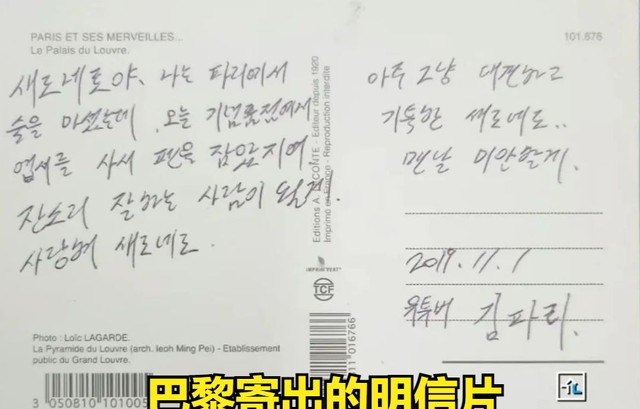 PARIS ET SES MERVEILLES...
Le Palais du Louvre.
101.678
새로네로야, 나는 파리에서
술을 마셨는데, 오늘 기념품점에서
엽서를 사서 펜을 잡았지여.
잔소리 잘하는 사람이 될게.
사랑해 새로네로.
아주 그냥 대견하고
기특한 새로네로..
맨날 미안할게.
2019.11.1
유튜버 김파리.
Editions A. LECONTE - Editeur depuis 1920
Imprimé en France - Reproduction interdite
IMPRIM'VERT
TCF
Photo : Loïc LAGARDE.
La Pyramide du Louvre (arch. Ieoh Ming Pei) - Etablissement
public du Grand Louvre.
3 050810 101005
411 016766
巴黎寄出的明信片